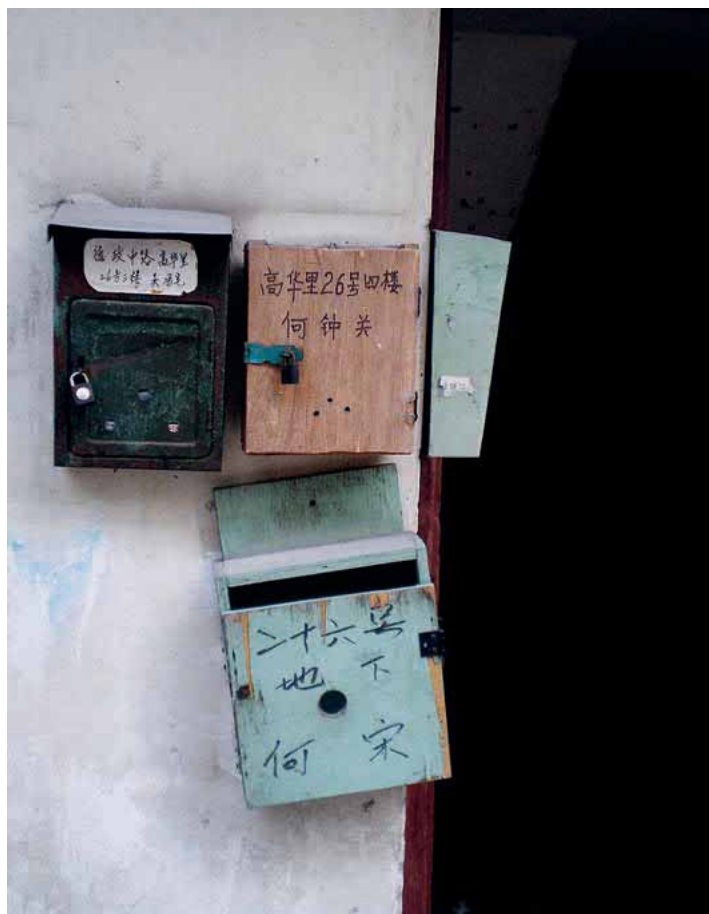 德政中路高华里
26号3楼 关
高华里26号四楼
何钟关
二十六号
地下
何宋